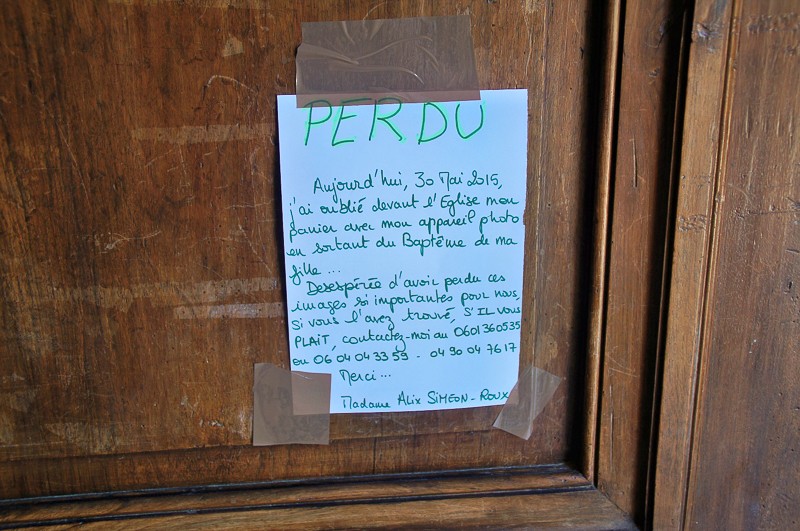 PERDU
Aujourd'hui, 30 Mai 2015,
j'ai oublié devant l'Eglise mon
panier avec mon appareil photo
en sortant du Baptême de ma
fille ...
Desespérée d'avoir perdu ces
images si importantes pour nous,
si vous l'avez trouvé, S'IL VOUS
PLAIT, contactez-moi au 0601360535
ou 06 04 04 33 59 - 04 90 04 76 17
Merci...
Madame Alix SIMEON-ROUX